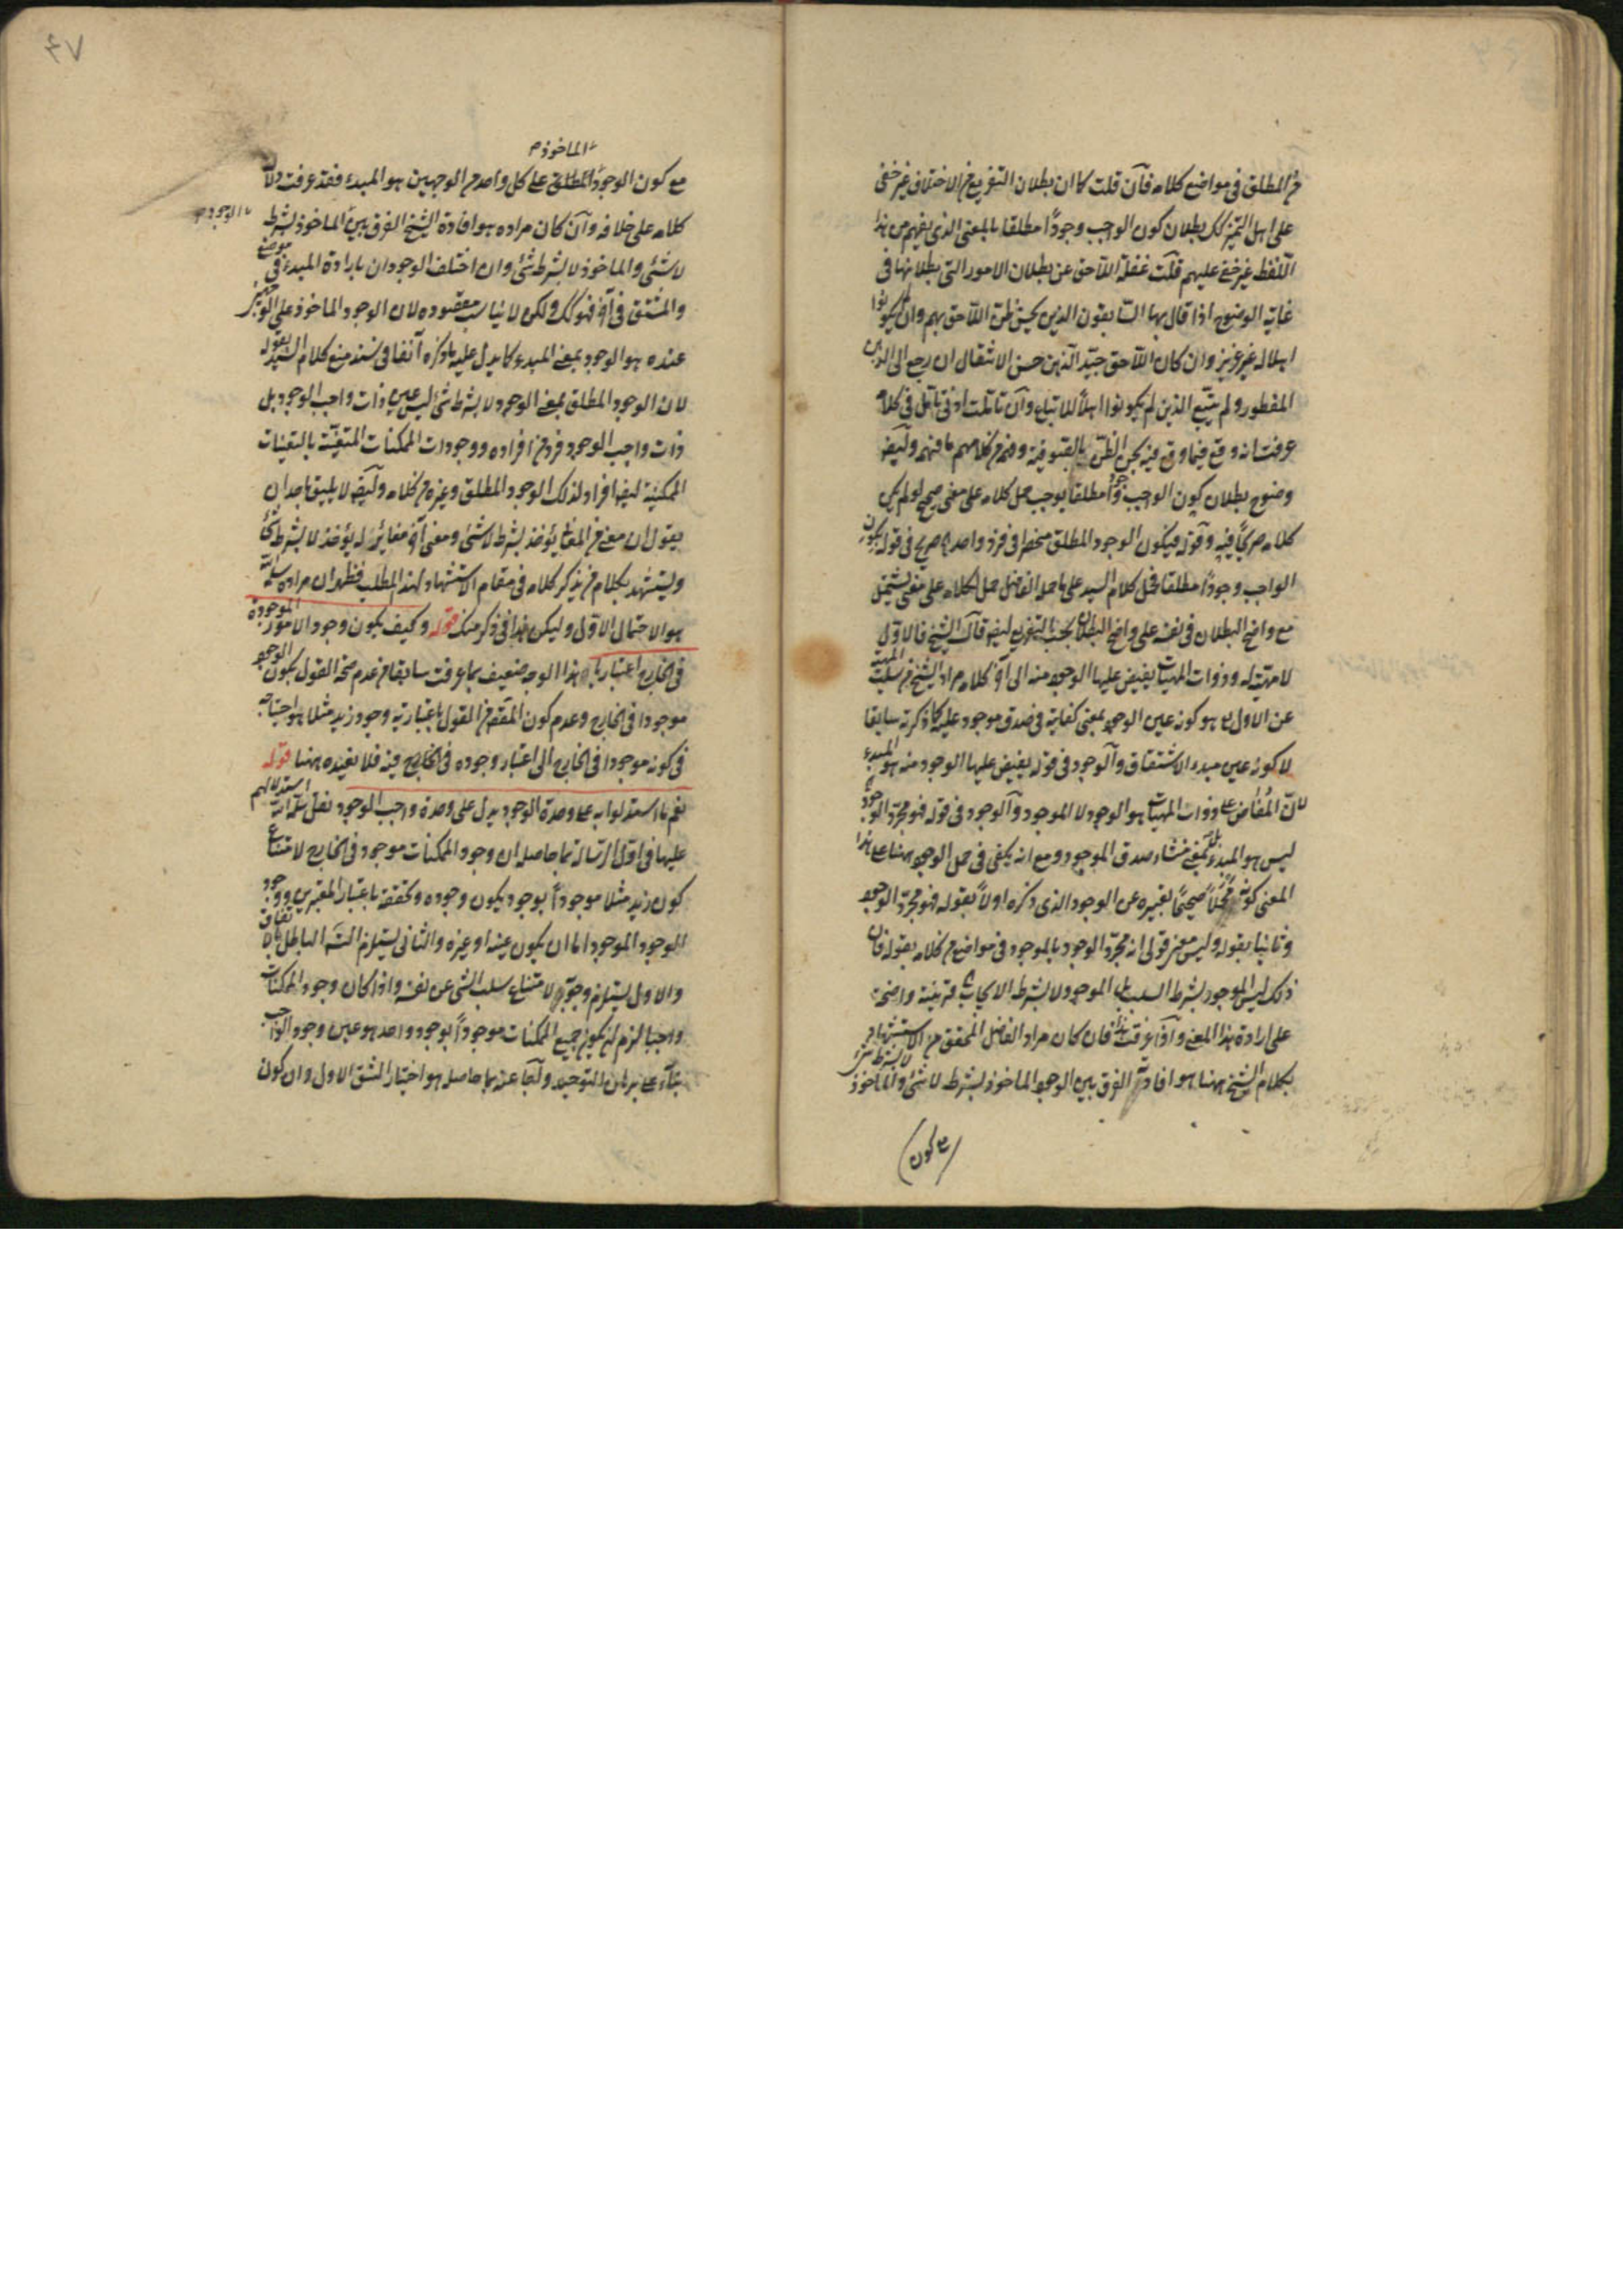 من المطلق في مواضع كلامه فان قلت كما ان بطلان التفريع من الاختلاف غير خفي
على اهل التميز كك بطلان كون الواجب وجودًا مطلقا بالمعنى الذي يفهم من هذا
اللفظ غير خفي عليهم قلت غفلة اللاحق عن بطلان الامور التي بطلانها في
غاية الوضوح اذا قال بها السابقون الذين يحسن ظن اللاحق بهم وان لم يكونوا
اهلا له غير عزيز وان كان اللاحق جيد الذهن حسن الانتقال ان رجع الى الذهن
المفطور ولم يتبع الذين لم يكونوا اهلاً للاتباع وان تاملت ادنى تامل في كلامه
عرفت انه وقع فيما وقع فيه بحسن الظن بالصوفية وفهم من كلامهم ما فهم وايضا
وضوح بطلان كون الواجب وجودا مطلقا يوجب حمل كلامه على معنى صحيح لو لم يكن
كلامه صريحًا فيه وقوله فيكون الوجود المطلق منحصرا في فرد واحد صريح في قوله بكون
الواجب وجودًا مطلقا فحمل كلام السيد على ما حمله الفاضل حمل لكلامه على معنى يشتمل
مع واضح البطلان في نفسه على واضح البطلان بحسب التفريع ايضا قال الشيخ فالاول
لا مهية له وذوات المهيات يفيض عليها الوجود منه الى آخر كلامه مراد الشيخ من سلب المهية
عن الاول تع هو كونه عين الوجود بمعنى كفايته في صدق موجود عليه كما ذكرته سابقا
لا كونه عين مبدء الاشتقاق والوجود في قوله يفيض عليها الوجود منه هو المبدء
لان المُفاض على ذوات المهيات هو الوجود لا الموجود والوجود في قوله فهو مجرد الوجود
ليس هو المبدء بل بمعنى منشاء صدق الموجود ومع انه يكفي في حمل الوجود ههنا على هذا
المعنى كونه محملاً صحيحًا تعبيره عن الوجود الذي ذكره اولاً بقوله فهو مجرد الوجود
وثانيا بقوله وليس معنى قولي انه مجرد الوجود بالموجود في مواضع من كلامه بقوله فان
ذلك ليس الموجود بشرط السلب بل الموجود لا بشرط الايجاب قرينة واضحة
على ارادة هذا المعنى واذا عرفت هذا فان كان مراد الفاضل المحقق من الاستشهاد
بكلام الشيخ ههنا هو افادته الفرق بين الوجود الماخوذ بشرط لا شئ والماخوذ لا بشرط شئ
مع كون
الماخوذ
مع كون الوجود المطلق على كل واحد من الوجهين هو المبدء فقد عرفت دلالة
كلامه على خلافه وان كان مراده هو افادة الشيخ الفرق بين الماخوذ بشرط
الوجود
لا شئ والماخوذ لا بشرط شئ وان اختلف الوجودان بارادة المبدء في موضع
والمشتق في آخر فهو كك ولكن لا يناسب مقصوده لان الوجود الماخوذ على الوجهين
عنده هو الوجود بمعنى المبدء كما يدل عليه ما ذكره آنفا في سند منع كلام السيد بقوله
لان الوجود المطلق بمعنى الوجود لا بشرط شئ ليس عين ذات واجب الوجود بل
ذات واجب الوجود فرد من افراده ووجودات الممكنات المتعينة بالتعينات
الممكنية ايضا افراد لذلك الوجود المطلق وغيره من كلامه وايضا لا يليق باحد ان
يقول ان معنى من المعاني يؤخذ بشرط لا شئ ومعنى آخر مغاير له يؤخذ لا بشرط شئ
ويستشهد بكلام من يذكر كلامه في مقام الاستشهاد لهذا المطلب فظهر ان مراده
هو الاحتمال الاول وليكن هذا في ذكر منك قوله وكيف يكون وجود الامور الموجودة
في الخارج اعتباريا هذا الوجه ضعيف بما عرفت سابقا من عدم صحة القول بكون الوجود
موجودا في الخارج وعدم كون المقصود من القول باعتبارية وجود زيد مثلا هو احتياجه
في كونه موجودا في الخارج الى اعتبار وجوده في الخارج فيه فلا نعيده ههنا قوله
نعم ما استدلوا به على وحدة الوجود يدل على وحدة واجب الوجود نقل استدلالهم
عليها في اول الرسالة بما حاصله ان وجود الممكنات موجود في الخارج لامتناع
كون زيد مثلا موجوداً بوجود يكون وجوده وتحققه باعتبار المعتبرين ووجود
الوجود الموجود اما ان يكون عينه او غيره والثاني يستلزم التسلسل الباطل
والاول يستلزم وجوبه لامتناع سلب الشئ عن نفسه واذا كان وجود الممكنات
واجبا لزم ان يكون جميع الممكنات موجوداً بوجود واحد هو عين وجود الواجب
بناءً على برهان التوحيد واجاب عنه بما حاصله هو اختيار الشق الاول وان كون